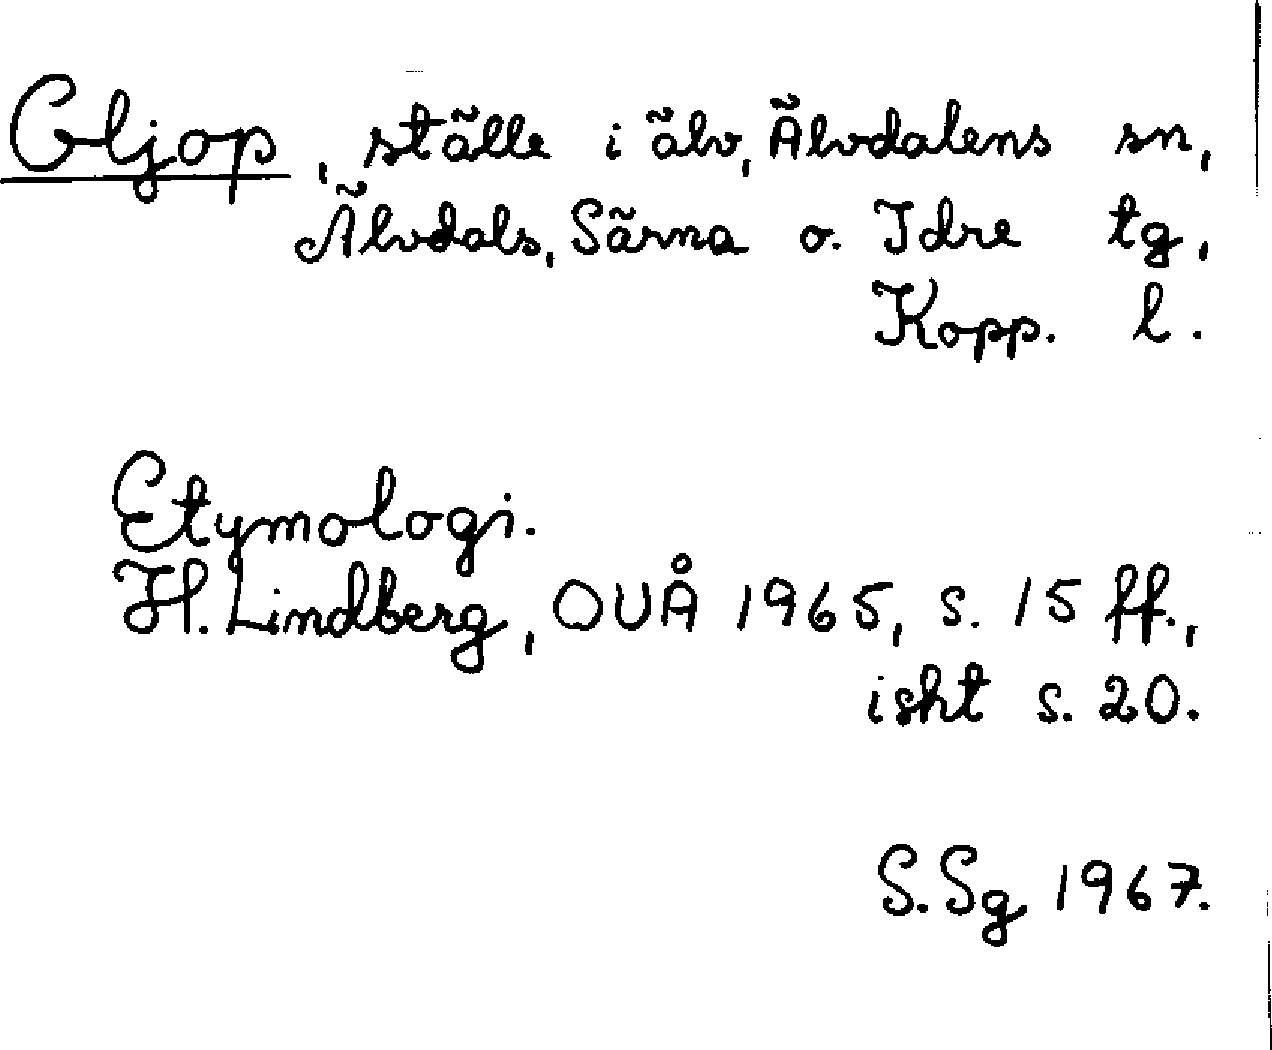 Gljop, ställe i älv, Älvdalens sn,
Älvdals, Särna o. Idre tg,
Kopp. l.
Etymologi.
H. Lindberg, OUÅ 1965, s. 15 ff.,
isht s. 20.
S. Sg 1967.